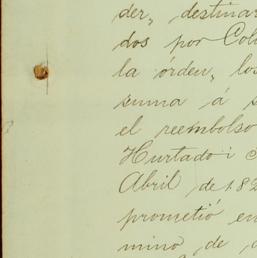 der, destinar
dos por Col
la órden, los
suma á s
el reembolso
Hurtado i
Abril de 182
prometió en
mino de